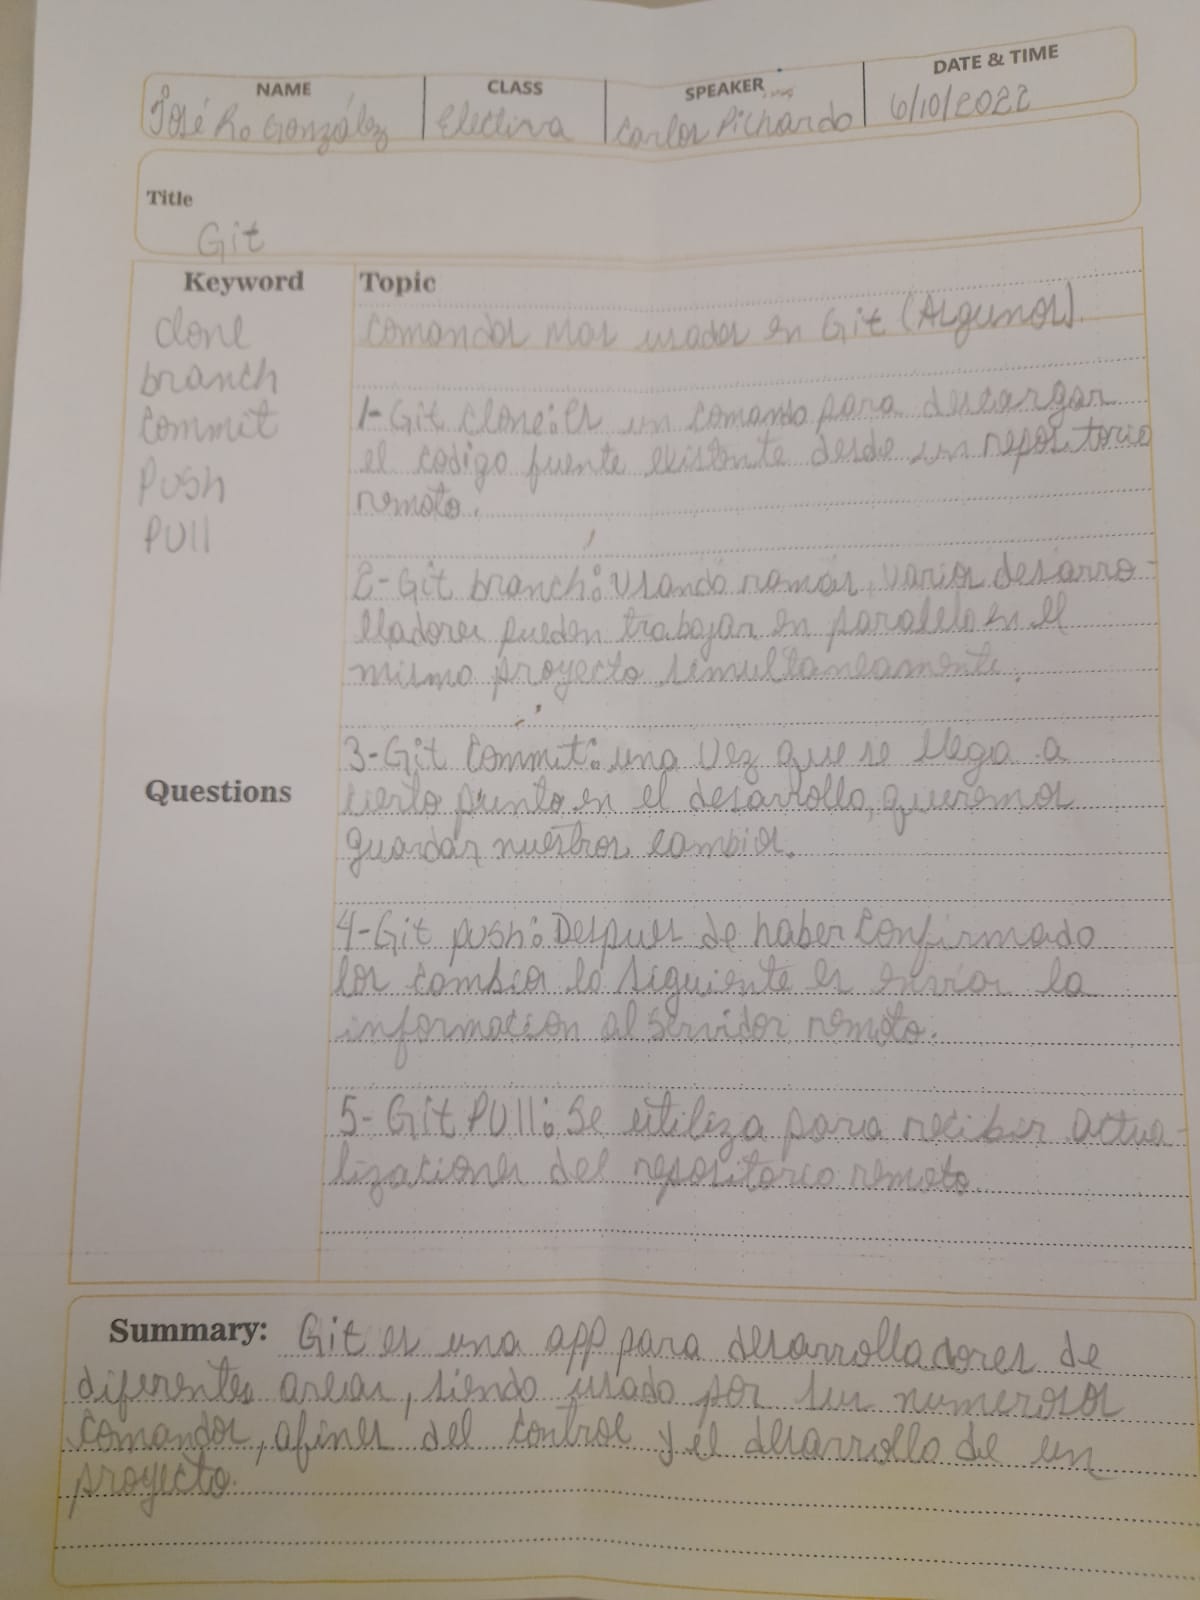 NAME CLASS SPEAKER DATE & TIME
José Ro González Electiva Carlos Pichardo 6/10/2022
Title
Git
Keyword
clone
branch
Commit
Push
PUll
Questions
Topic
Comandos mas usados en Git (Algunos).
1-Git clone: Es un comando para descargar
el codigo fuente existente desde un repositorio
remoto.
2-Git branch: Usando ramas, varios desarro-
lladores pueden trabajar en paralelo en el
mismo proyecto simultaneamente.
3-Git Commit: una vez que se llega a
cierto punto en el desarrollo, queremos
guardar nuestros cambios.
4-Git push: Despues de haber Confirmado
los cambios lo siguiente es enviar la
informacion al servidor remoto.
5- Git PUll: Se utiliza para recibir actua-
lizaciones del repositorio remoto.
Summary: Git es una app para desarrolladores de
diferentes areas, siendo usado por sus numerosos
comandos, afines del control y el desarrollo de un
proyecto.